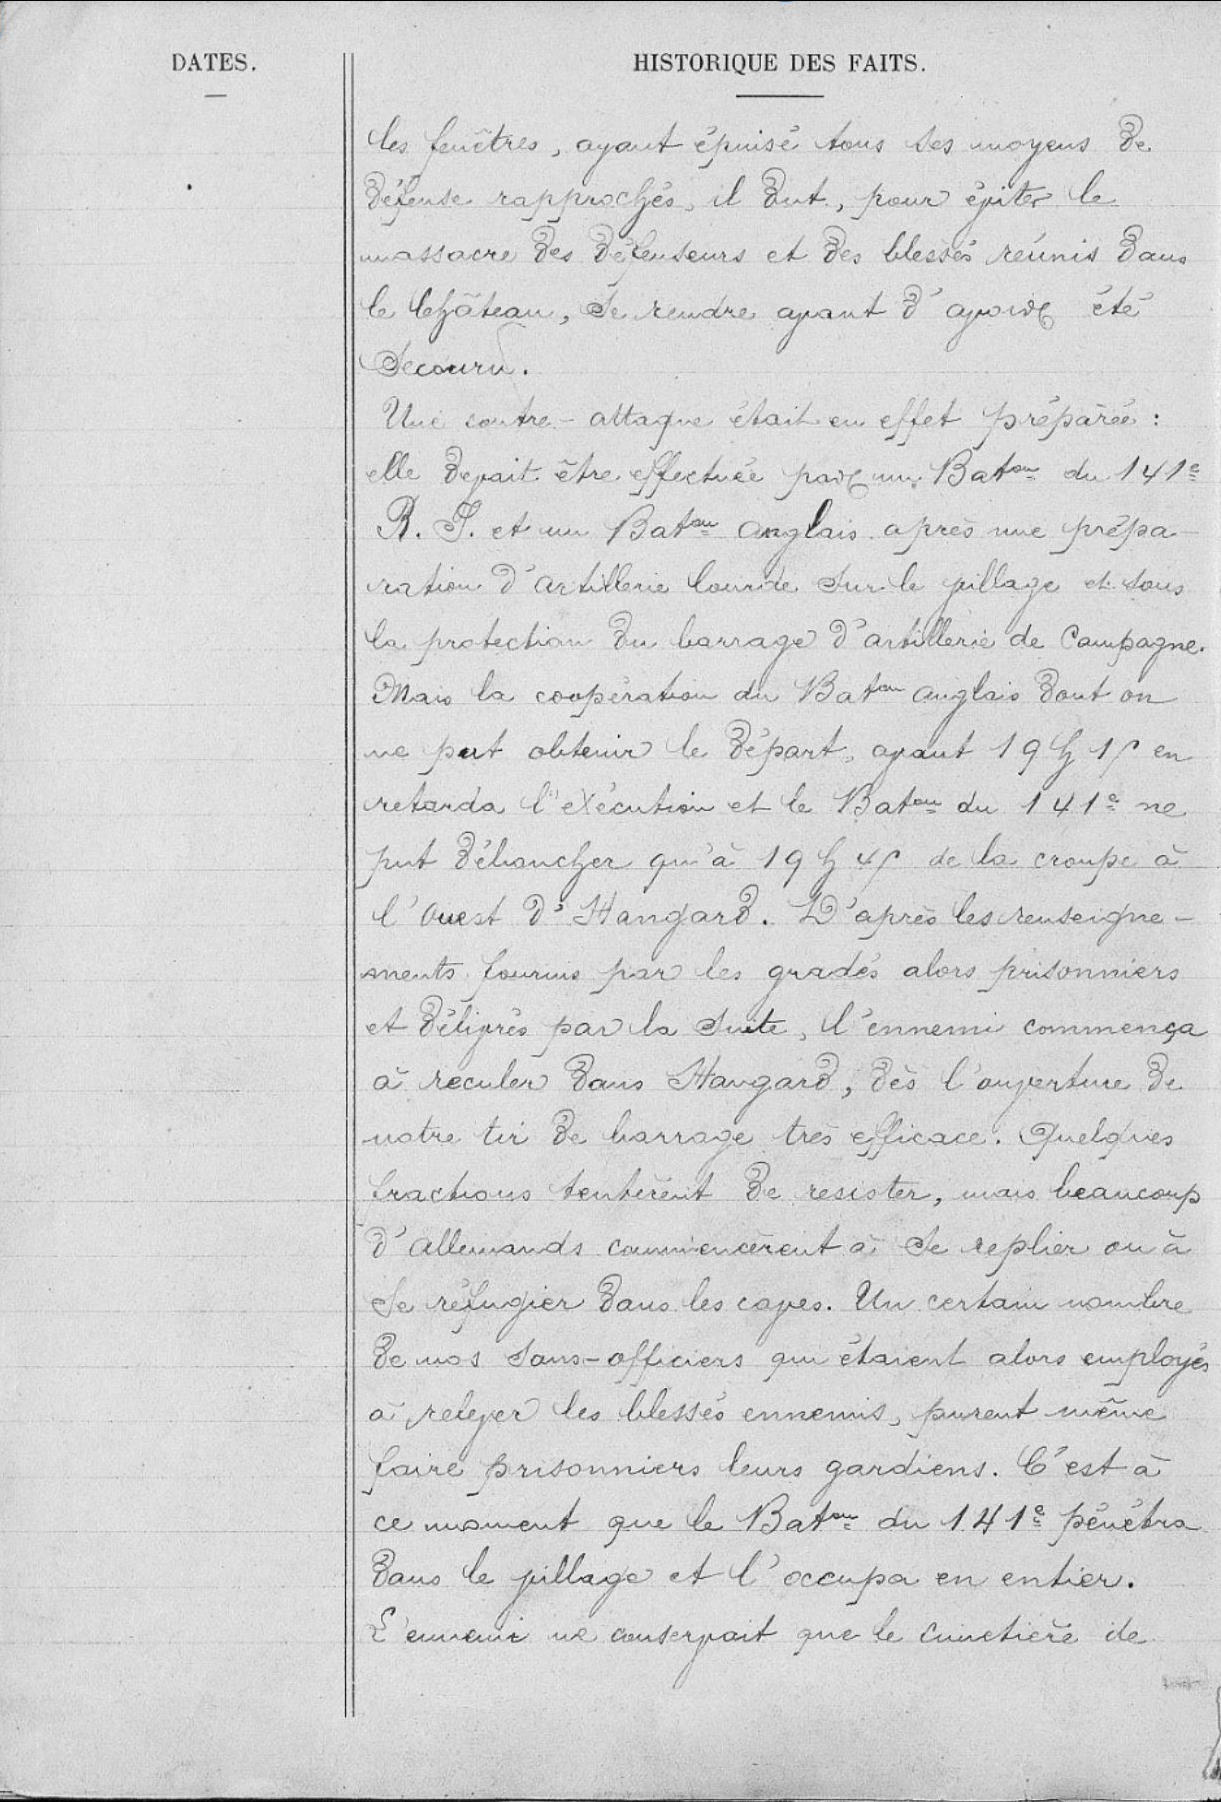 DATES.
HISTORIQUE DES FAITS.
les fenêtres, ayant épuisé tous ses moyens de
défense rapprochés, il dut, pour éviter le
massacre des défenseurs et des blessés réunis dans
le Château, se rendre avant d'avoir été
secouru.
Une contre-attaque était en effet préparée :
elle devait être effectuée par un Baton du 141e
R. I. et un Baton anglais après une prépa-
ration d'artillerie lourde sur le village et sous
la protection du barrage d'artillerie de Campagne.
Mais la coopération du Baton anglais dont on
ne put obtenir le départ, avant 19 h 15 en
retarda l'exécution et le Baton du 141e ne
put déboucher qu'à 19 h 45 de la croupe à
l'Ouest d'Hangard. D'après les renseigne-
ments fournis par les gradés alors prisonniers
et délivrés par la suite, l'ennemi commença
à reculer dans Hangard, dès l'ouverture de
notre tir de barrage très efficace. Quelques
fractions tentèrent de resister, mais beaucoup
d'allemands commencèrent à se replier ou à
se réfugier dans les caves. Un certain nombre
de nos sous-officiers qui étaient alors employés
à relever les blessés ennemis, purent même
faire prisonniers leurs gardiens. C'est à
ce moment que le Baton du 141e pénétra
dans le village et l'occupa en entier.
L'ennemi ne conservait que le cimetière de